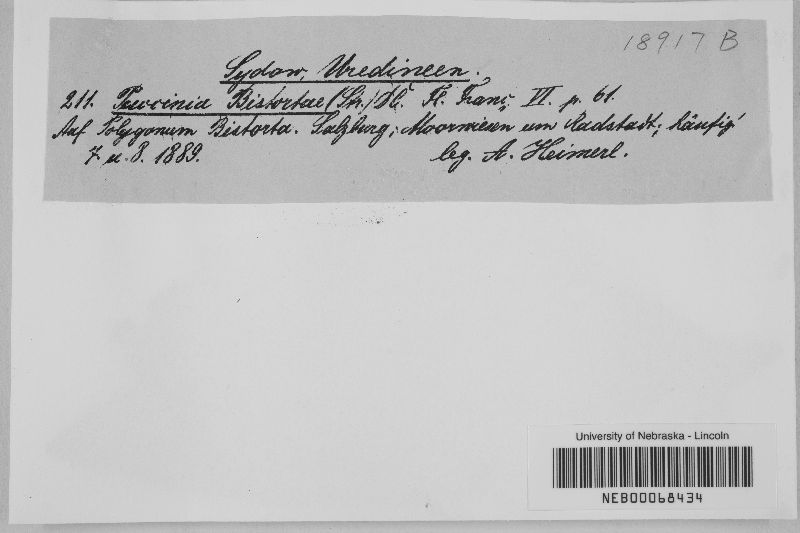 18917 B
Sydow, Uredineen.
211. Puccinia Bistortae (Str.) DC. Fl. Franç. VI. p. 61.
Auf Polygonum Bistorta. Salzburg; Moorwiesen um Radstadt; häufig
7. u. 8. 1889. leg. A. Heimerl.
University of Nebraska - Lincoln
NEB00068434